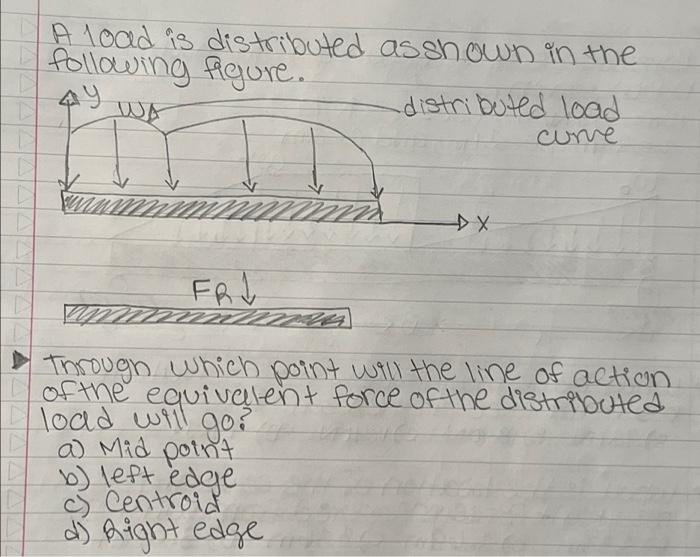 A load is distributed as shown in the
following figure.
y
WA
distributed load
curve
x
FR
Through which point will the line of action
of the equivalent force of the distributed
load will go?
a) Mid point
b) left edge
c) Centroid
d) Right edge